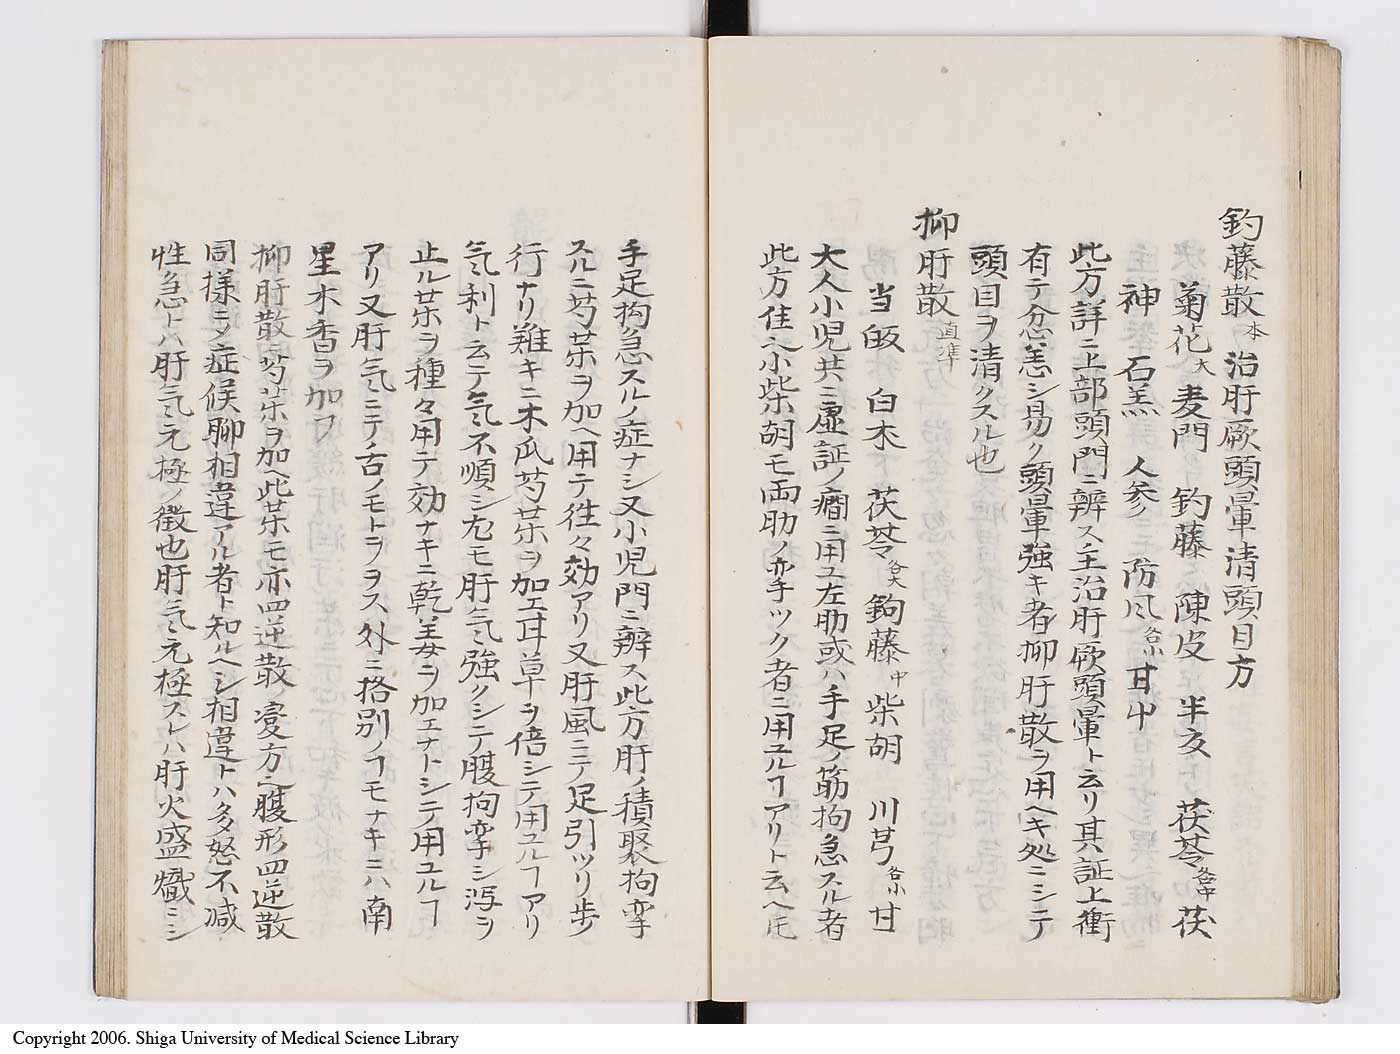 釣藤散 本 治肝厥頭暈清頭目方
菊花 大 麦門 釣藤 陳皮 半夏 茯苓 各中 茯
神 石羔 人参 防風 各小 甘中
此方詳ニ上部頭門ニ辨ス主治肝厥頭暈ト云リ其証上衝
有テ忿恚シ易ク頭暈強キ者抑肝散ヲ用ヘキ処ニシテ
頭目ヲ清クスル也
抑肝散 直準
当皈 白朮 茯苓 各大 鉤藤 中 柴胡 川芎 各小 甘
大人小児共ニ虚証ノ癇ニ用ユ左肋或ハ手足ノ筋拘急スル者
此方佳之小柴胡モ両肋ノ手ツク者ニ用ユルヿアリト云ヘ𪜈
手足拘急スルノ症ナシ又小児門ニ辨ス此方肝ノ積聚拘挛
スルニ芍薬ヲ加ヘ用テ往々効アリ又肝風ニテ足引ツリ歩
行ナリ難キニ木瓜芍薬ヲ加エ甘草ヲ倍シテ用ユルヿアリ
気利ト云テ気不順シ尤モ肝気強クシテ腹拘挛シ瀉ヲ
止ル薬ヲ種々用テ効ナキニ乾姜ヲ加エナトシテ用ユルヿ
アリ又肝気ニテ舌ノモトヲヲス外ニ格別ノヿモナキニハ南
星木香ヲ加フ
抑肝散ニ芍薬ヲ加ヘ此薬モ亦四逆散ノ変方之腹形四逆散
同様ニノ症候聊相違アル者ト知ルヘシ相違トハ多怒不减
性急トハ肝気亢極ノ徴也肝気亢極スレハ肝火盛熾ニシ
Copyright 2006. Shiga University of Medical Science Library